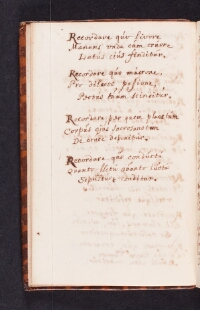 Recordare quo livore
Manans unda cum cruore
Latus eius finditur.
Recordare quo
Per
Portas tuum
Recordare per quem planctum
Corpus eius sacrosanctum
De cruce deponitur.
Recordare quo conducti
Quanto fletu quanto luctu
Sepulture conditur.